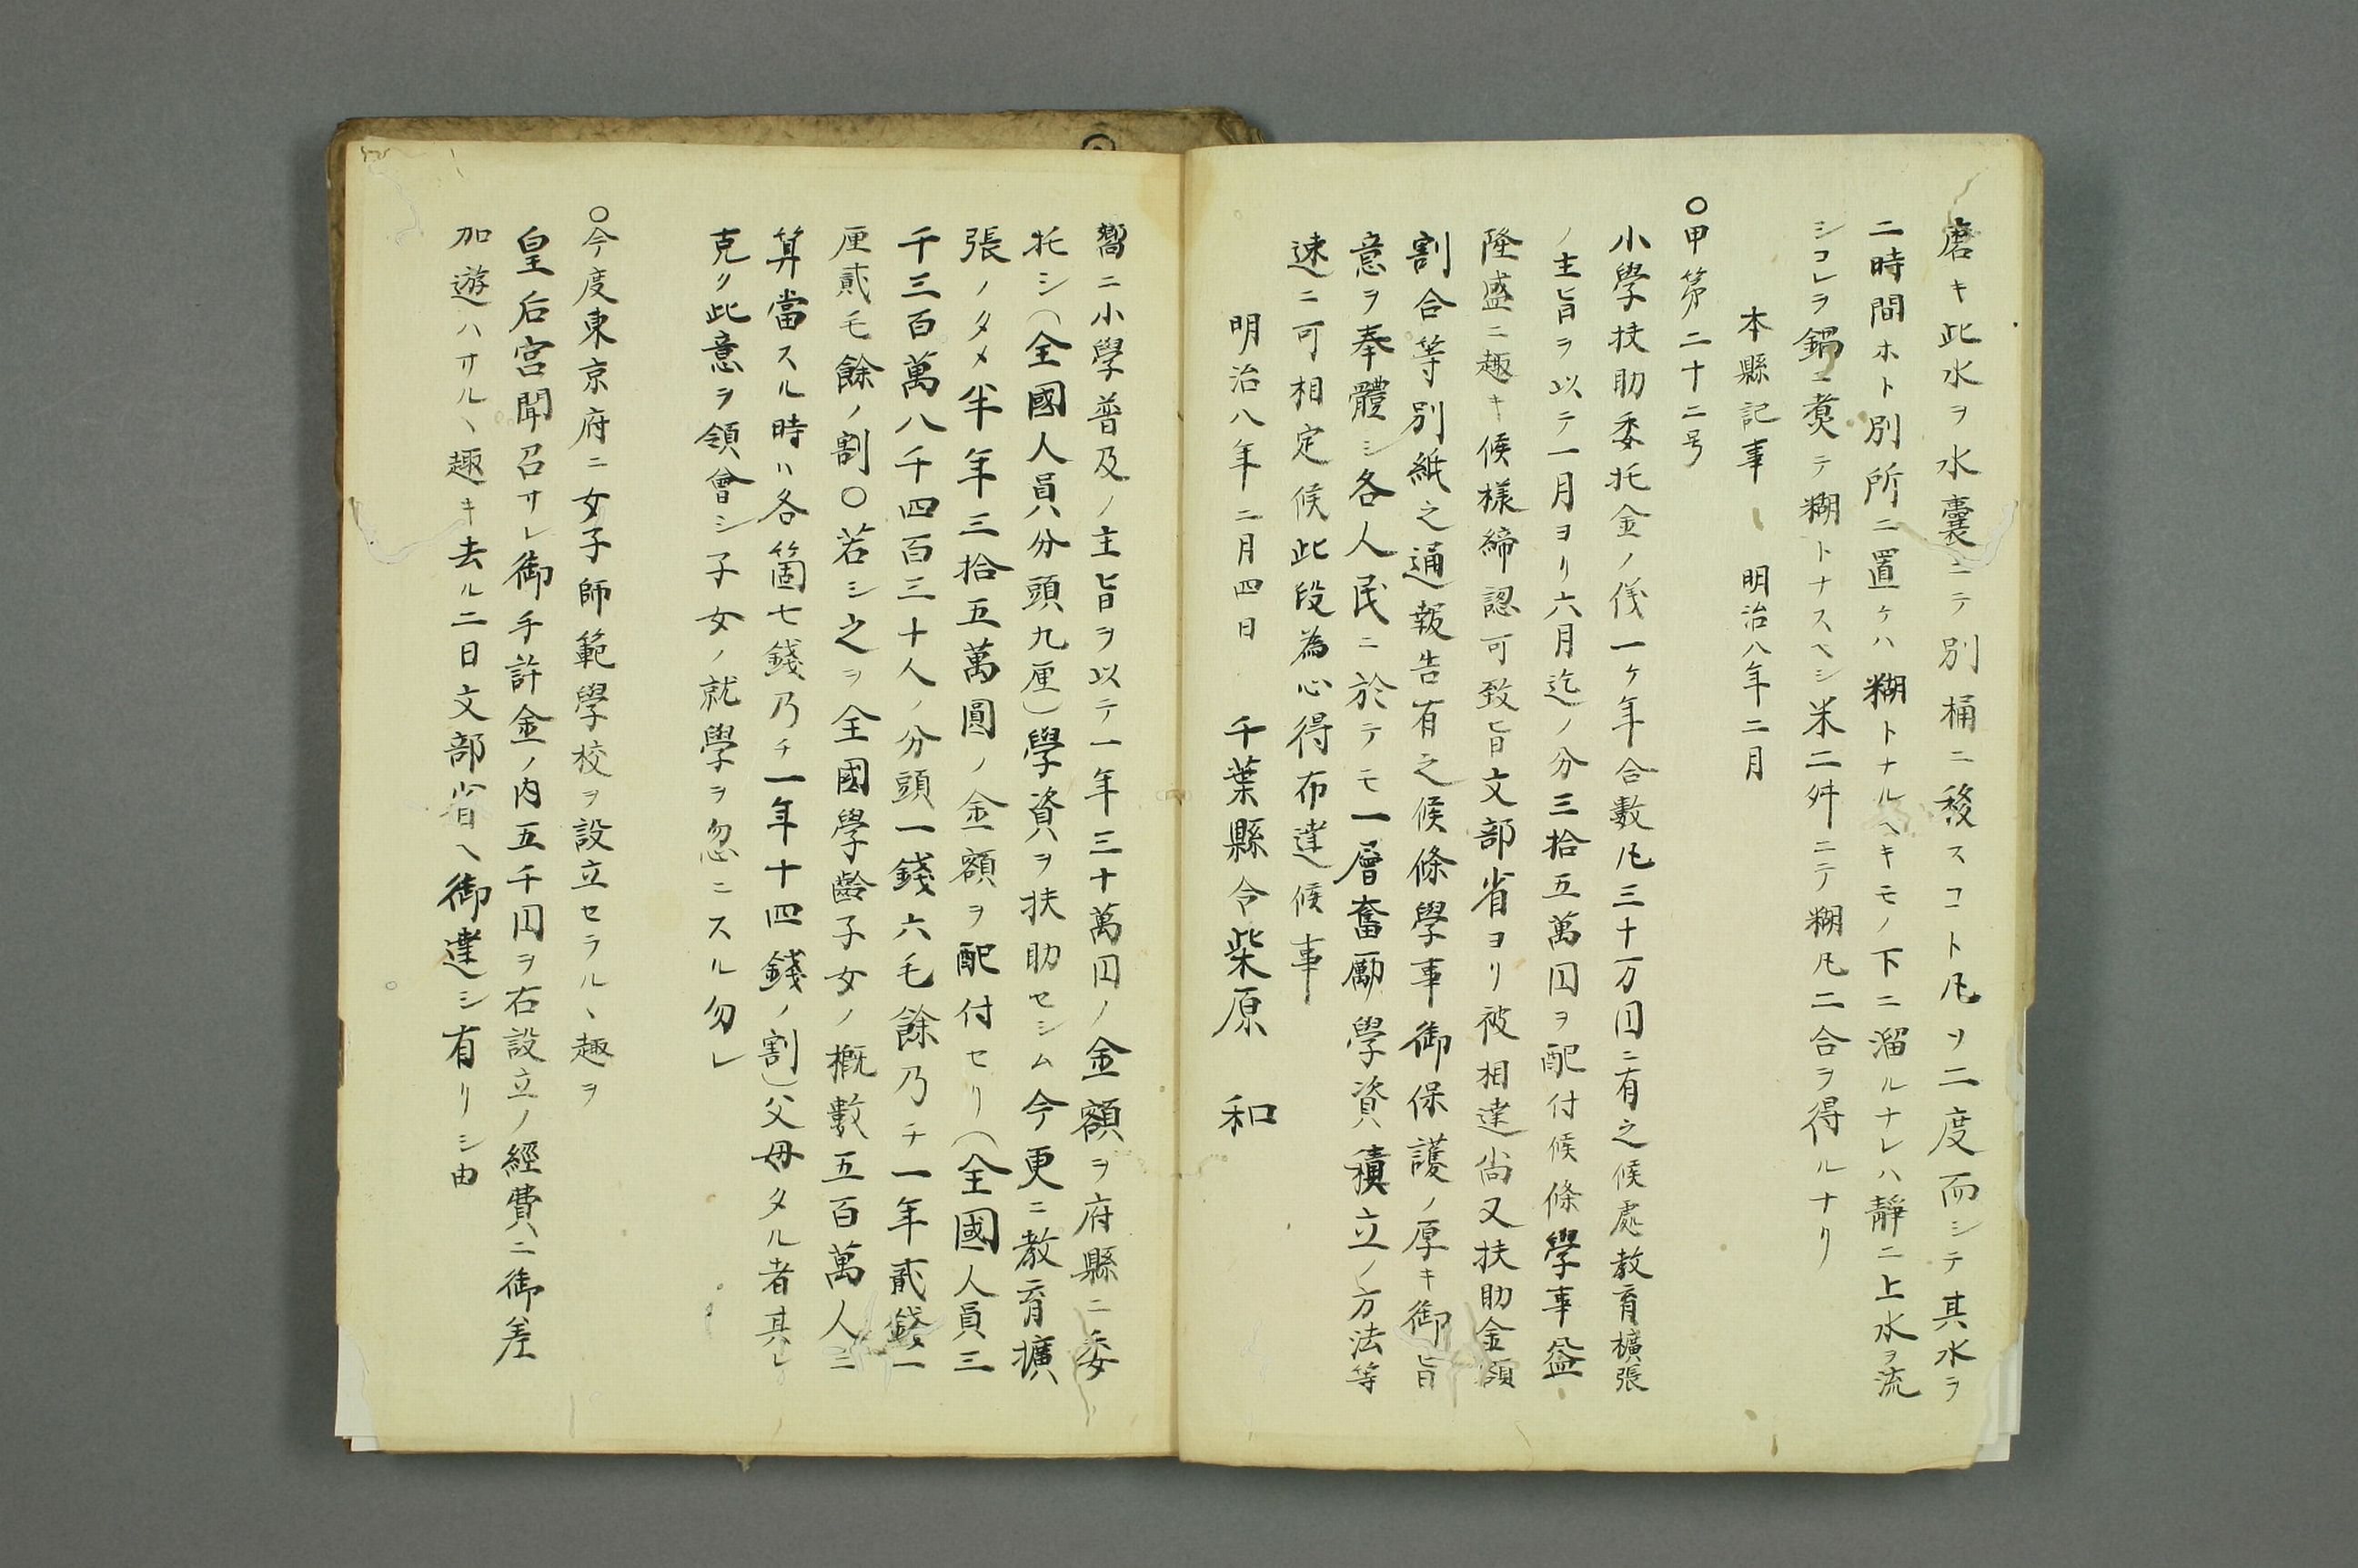 磨キ此水ヲ水嚢ニテ別桶ニ移スコト凡ソ二度而シテ其水ヲ
二時間ホト別所ニ置ケハ糊トナルヘキモノ下ニ溜ルナレハ靜ニ上水ヲ流
シコレヲ鍋ニ煑テ糊トナスヘシ米二舛ニテ糊凡二合ヲ得ルナリ
本縣記事 明治八年二月
○甲第二十二号
小學扶助委托金ノ儀一ケ年合數凡三十万円ニ有之候處教育擴張
ノ主旨ヲ以テ一月ヨリ六月迄ノ分三拾五萬円ヲ配付候條學事益
隆盛ニ趣キ候樣締認可致旨文部省ヨリ被相達尚又扶助金額
割合等別紙之通報告有之候條學事御保護ノ厚キ御旨
意ヲ奉體シ各人民ニ於テモ一層奮勵學資積立ノ方法等
速ニ可相定候此段為心得布達候事
明治八年二月四日 千葉縣令柴原 和
嚮ニ小學普及ノ主旨ヲ以テ一年三十萬円ノ金額ヲ府縣ニ委
托シ（全國人員分頭九厘）學資ヲ扶助セシム今更ニ教育擴
張ノタメ半年三拾五萬圓ノ金額ヲ配付セリ（全國人員三
千三百萬八千四百三十人ノ分頭一錢六毛餘乃チ一年貳錢一
厘貳毛餘ノ割○若シ之ヲ全國學齡子女ノ概數五百萬人ニ
算當スル時ハ各箇七錢乃チ一年十四錢ノ割）父母タル者其レ
克ク此意ヲ領會シ子女ノ就學ヲ忽ニスル勿レ
○今度東京府ニ女子師範學校ヲ設立セラルヽ趣ヲ
皇后宮聞召サレ御手許金ノ内五千円ヲ右設立ノ經費ニ御差
加遊ハサルヽ趣キ去ル二日文部省ヘ御達シ有リシ由